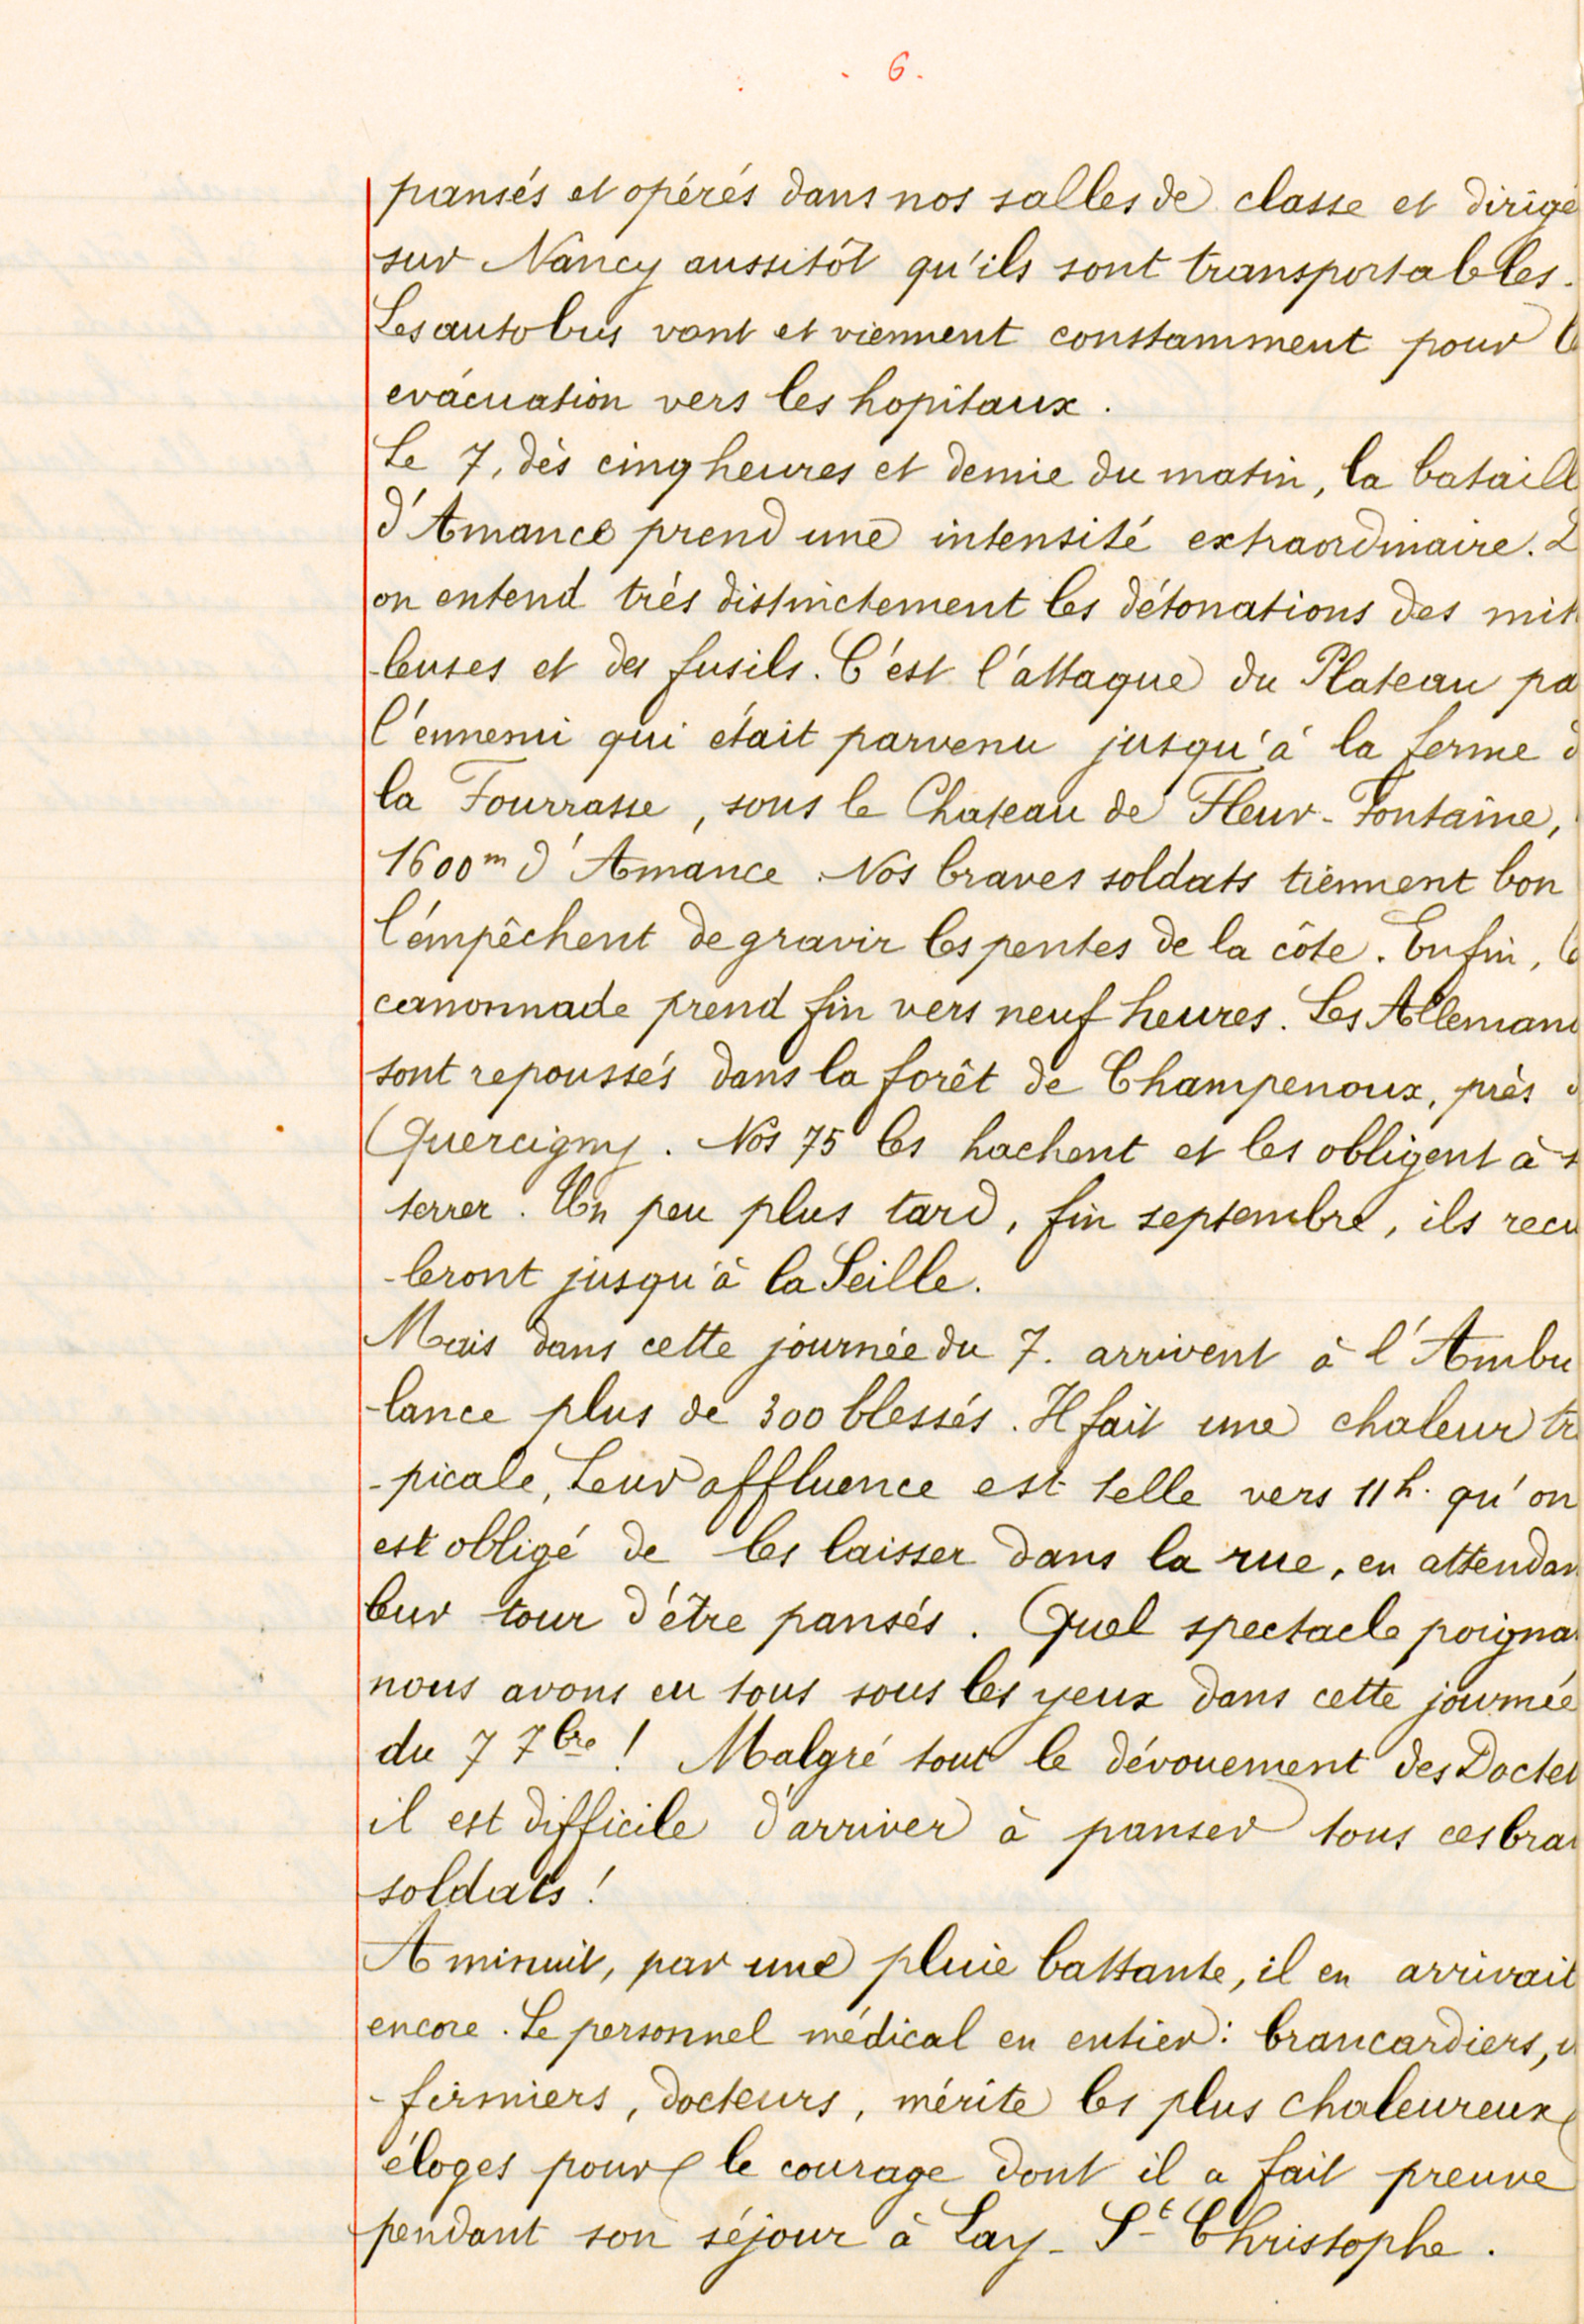 . 6.
pansés et opérés dans nos salles de classe et dirigé
sur Nancy aussitôt qu'ils sont transportables.
Les autobus vont et viennent constamment pour l
evacuation vers les hopitaux.
Le 7, dès cinq heures et demie du matin, la bataill
d'Amance prend une intensité extraordinaire. D
on entend très distinctement les détonations des mit
-leuses et des fusils. C'est l'attaque du Plateau pa
l'ennemi qui était parvenu jusqu'à la ferme d
la Fourrasse, sous le Chateau de Fleur-Fontaine,
1600m d'Amance. Nos braves soldats tiennent bon
l'empêchent de gravir les pentes de la côte. Enfin, l
canonnade prend fin vers neuf heures. Les Alleman
sont repoussés dans la forêt de Champenoux, près d
Quercigny. Nos 75 les hachent et les obligent à s
terrer. Un peu plus tard, fin septembre, ils recu
-leront jusqu'à la Seille.
Mais dans cette journée du 7. arrivent à l'Ambu
-lance plus de 300 blessés. Il fait une chaleur tr
-picale, Leur affluence est telle vers 11h. qu'on
est obligé de les laisser dans la rue, en attendan
leur tour d'être pansés. Quel spectacle poigna
nous avons eu tous sous les yeux dans cette journée
du 7 7bre ! Malgré tout le dévouement des Docte
il est difficile d'arriver à panser tous ces bra
soldats !
A minuit, par une pluie battante, il en arrivait
encore. Le personnel médical en entier : brancardiers, i
-firmiers, docteurs, mérite les plus chaleureux
éloges pour le courage dont il a fait preuve
pendant son séjour à Lay-St Christophe.